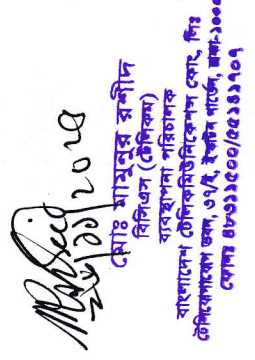 মোঃ মামুনুর রশীদ
বিসিএস (টেলিকম)
ব্যবস্থাপনা পরিচালক
বাংলাদেশ টেলিকমিউনিকেশন্স কোং, লিঃ
টেলিযোগাযোগ ভবন, ৩৭/ই, ইস্কাটন গার্ডেন, ঢাকা-১০০০
ফোনঃ ৪৮৩১১৫০০/